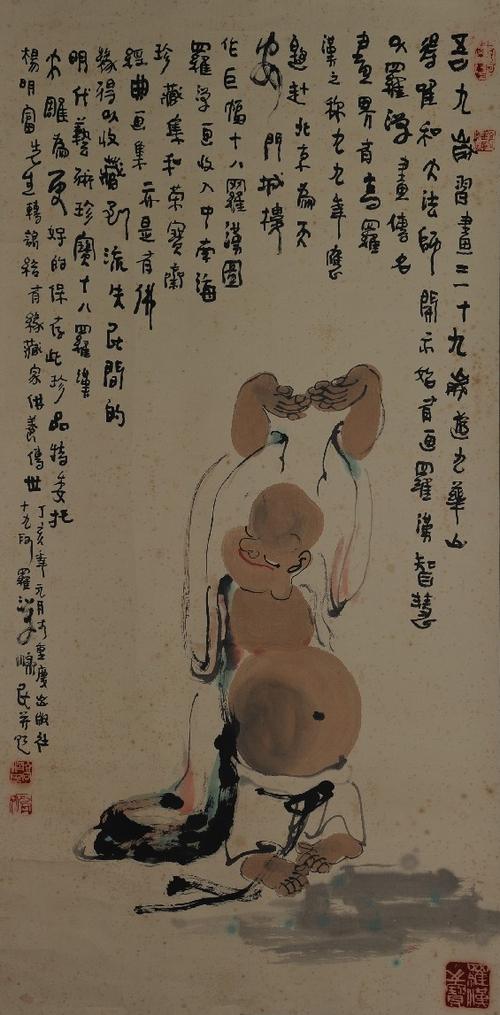 吾九歲習畫二十九歲遊九華山
得唯和大法師開示始有画羅漢智慧
以羅漢畫傳名
畫界有高羅
漢之称九九年應
邀赴北京為天
安門城樓
作巨幅十八羅漢圖
羅漢画收入中南海
珍藏集和榮寶齋
經典画集亦是有佛
緣得以收藏到流失民間的
明代藝術珍寶十八羅漢
木雕為更好的保存此珍品特委托
楊明富先生轉讓給有緣藏家供養傳世
丁亥年元月於重慶出版社
十九阿羅漢 民并題
羅漢